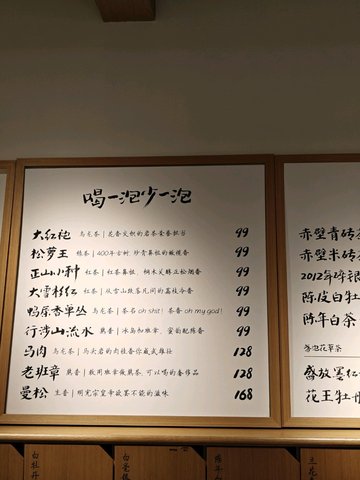 喝一泡少一泡
大红袍 乌龙茶 | 花香交织的岩茶香香担当 99
松萝王 绿茶 | 400年古树 珍贵鼻祖的橄榄香 99
正山小种 红茶 | 红茶鼻祖, 桐木关醇正松烟香 99
大雪彩红 红茶 | 从雪山跌落凡间的荔枝冷香 99
鸭屎香单丛 乌龙茶 | 茶名 oh shit! 茶香 oh my god! 99
行涉山流水 熟普 | 冰岛加班章, 蜜韵配陈香 99
马肉 乌龙茶 | 马头岩的肉桂香你威武雄壮 128
老班章 熟普 | 敢用班章做熟茶, 可以喝的奢侈品 128
曼松 生普 | 明宪宗皇帝欲罢不能的滋味 168
赤壁青砖茶
赤壁米砖茶
2012年年银
陈皮白
陈年白茶
盛放墨红
花王牡丹
白牡丹